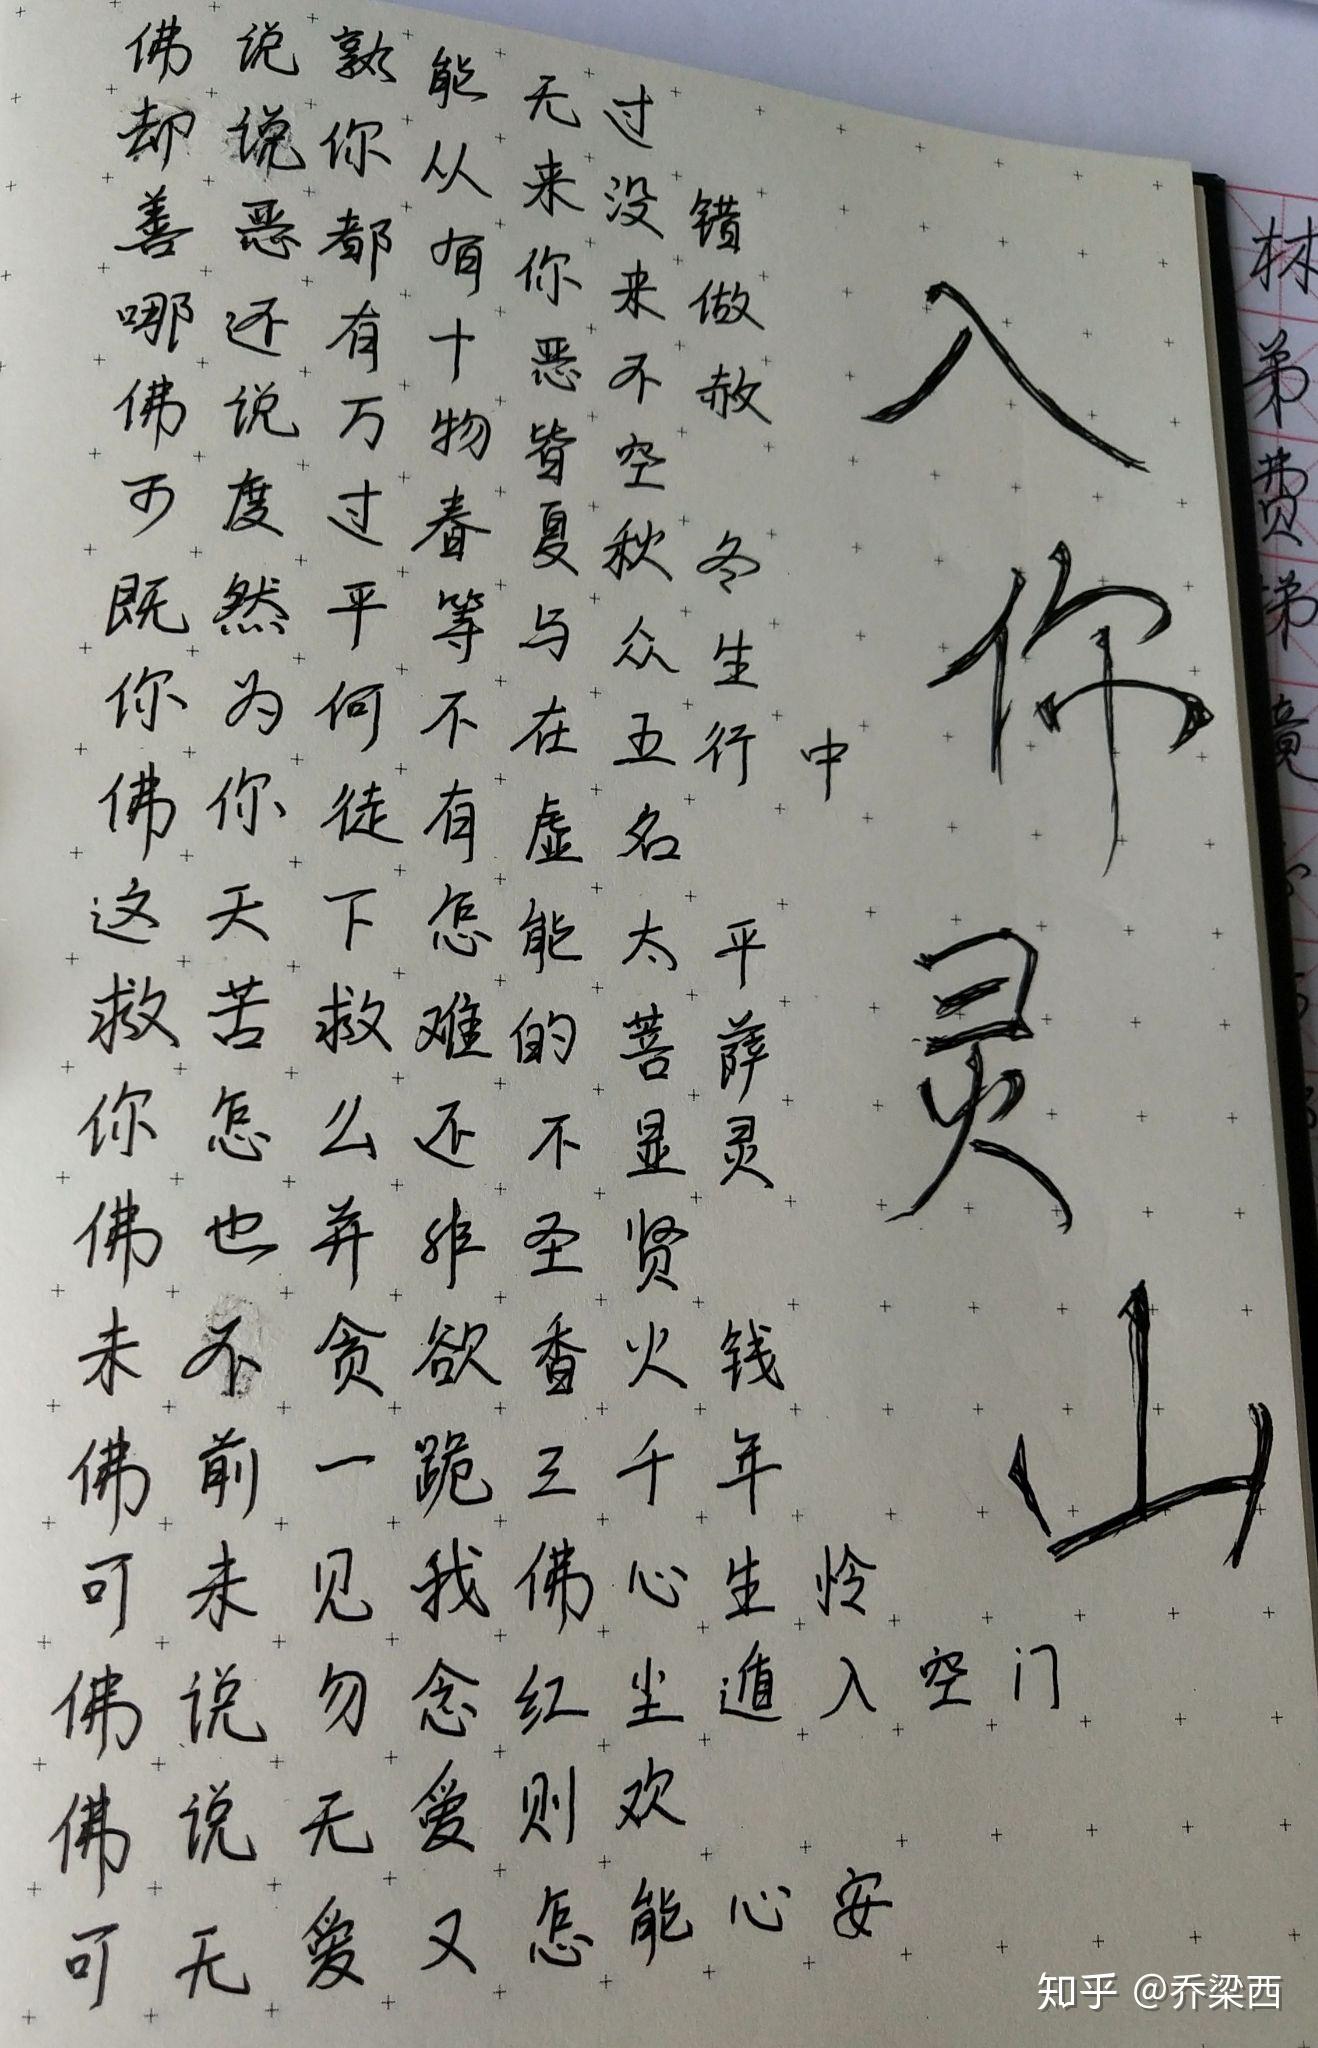 佛说孰能无过
却说你从来没错
善恶都有你来做
哪还有十恶不赦
佛说万物皆空
可度过春夏秋冬
既然平等与众生
你为何不在五行中
佛你徒有虚名
这天下怎能太平
救苦救难的菩萨
你怎么还不显灵
佛也并非圣贤
未不贪欲香火钱
佛前一跪三千年
可未见我佛心生怜
佛说勿念红尘遁入空门
佛说无爱则欢
可无爱又怎能心安
入你灵山
林弟费
知乎 @乔梁西